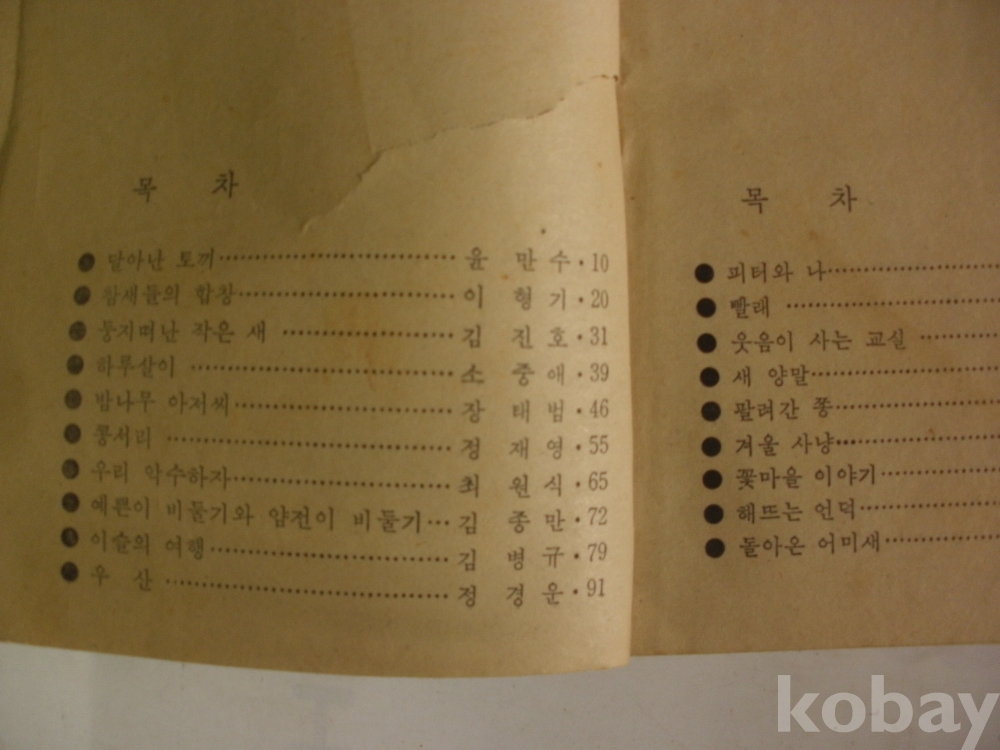 목 차
달아난 토끼 윤 만 수 · 10
참새들의 합창 이 형 기 · 20
둥지떠난 작은 새 김 진 호 · 31
하루살이 소 중 애 · 39
밤나무 아저씨 장 태 범 · 46
콩서리 정 재 영 · 55
우리 악수하자 최 원 식 · 65
예쁜이 비둘기와 얌전이 비둘기 김 종 만 · 72
이슬의 여행 김 병 규 · 79
우 산 정 경 운 · 91
목 차
피터와 나
빨래
웃음이 사는 교실
새 양말
팔려간 쫑
겨울 사냥
꽃마을 이야기
해뜨는 언덕
돌아온 어미새
kobay